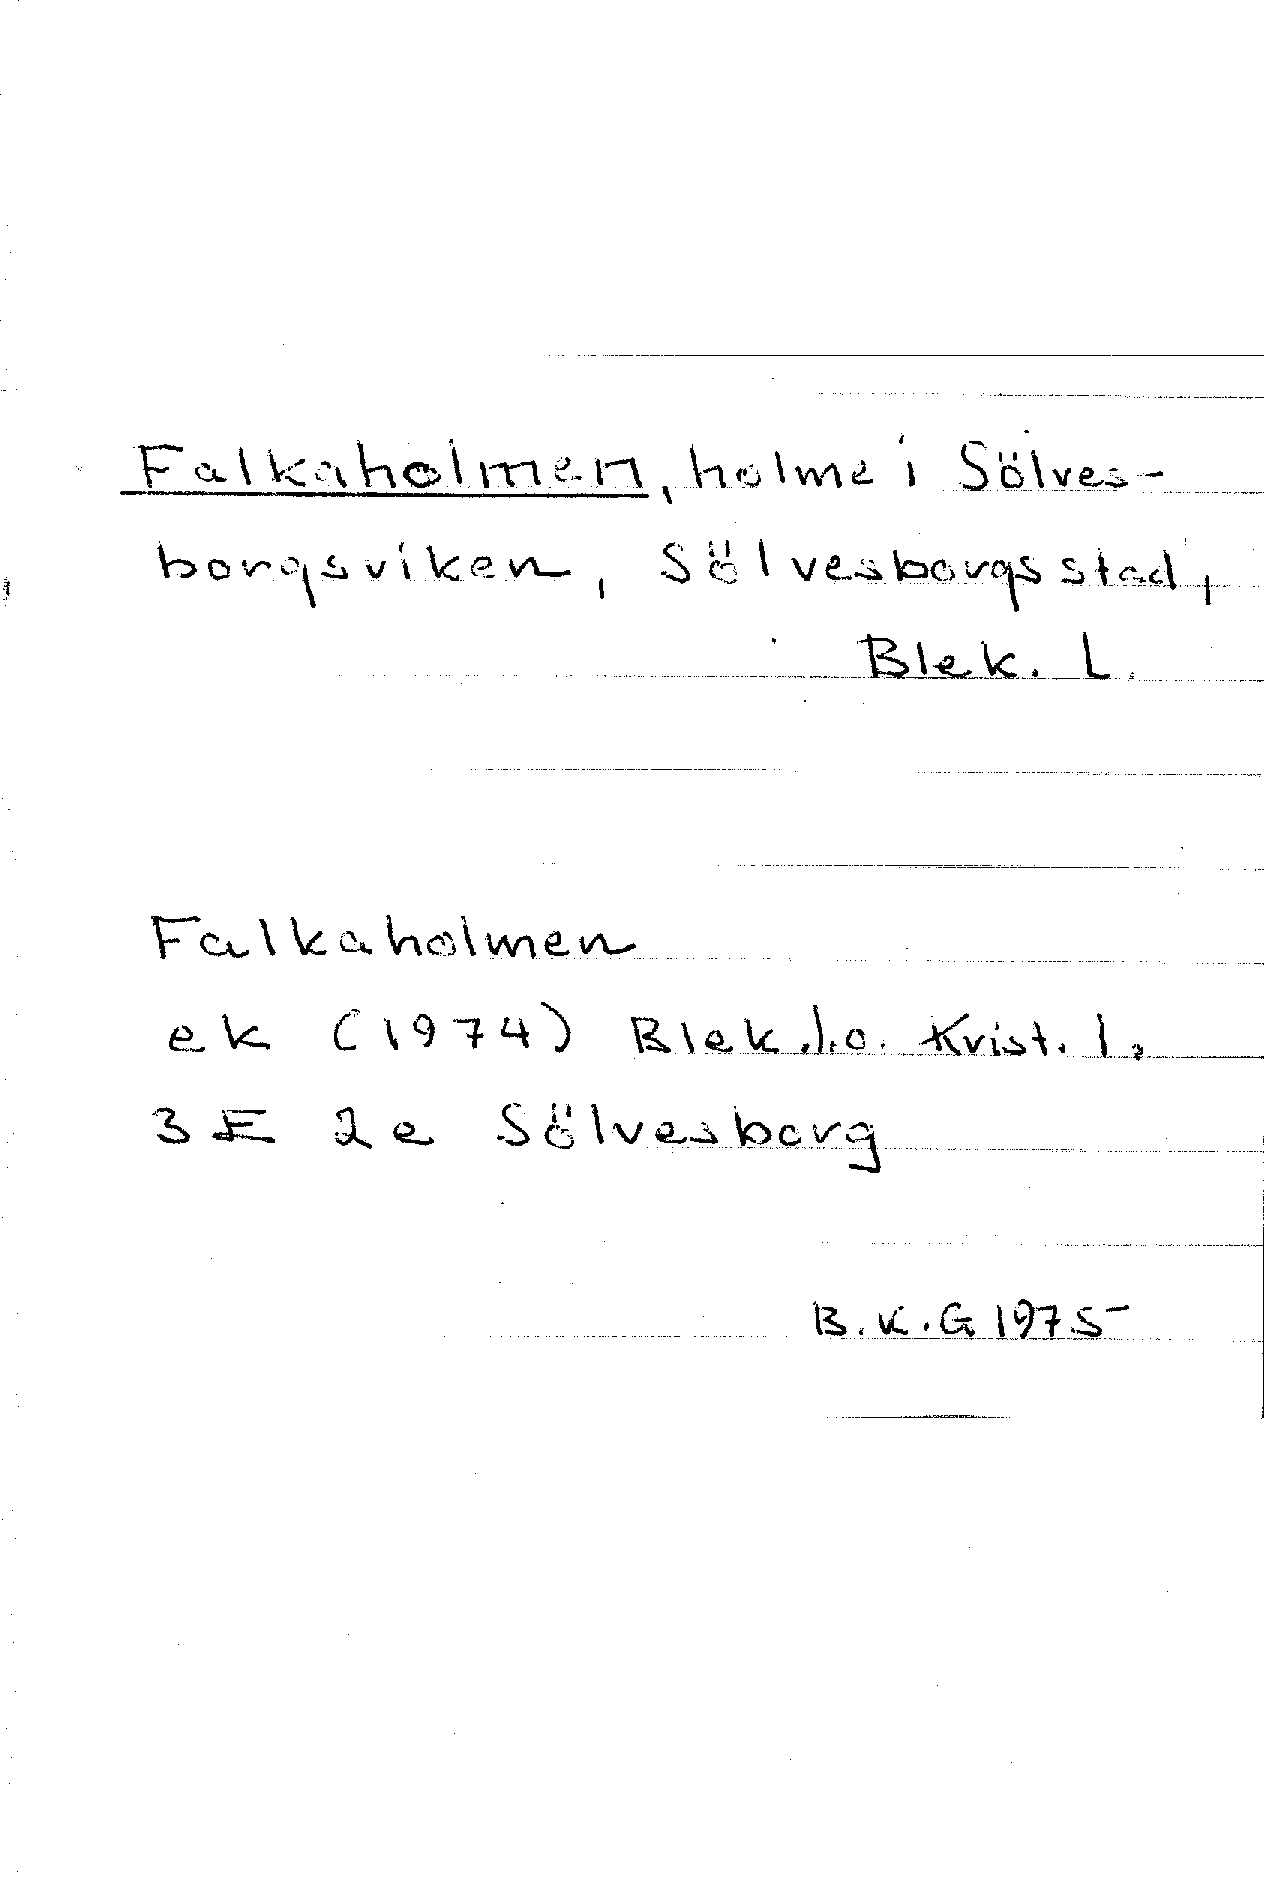 Falkaholmen, holme i Sölves-
borgsviken, Sölvesborgs stad,
Blek. L.
Falkaholmen
ek (1974) Blek. l. o. Krist. l.
3E 2e Sölvesborg
B.K.G 1975